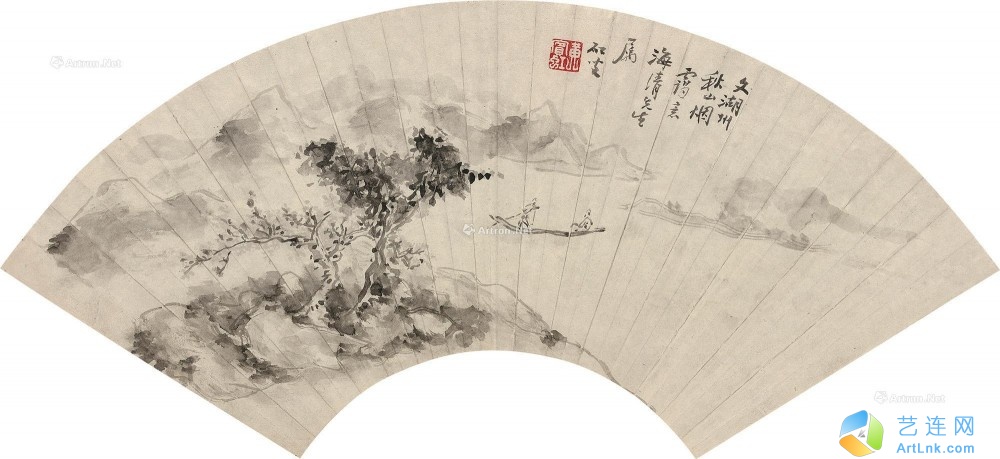 文湖州
秋山烟
靄意
海清先生
属
Artron.Net
Artron.Net
Artron.Net
艺连网
ArtLnk.com